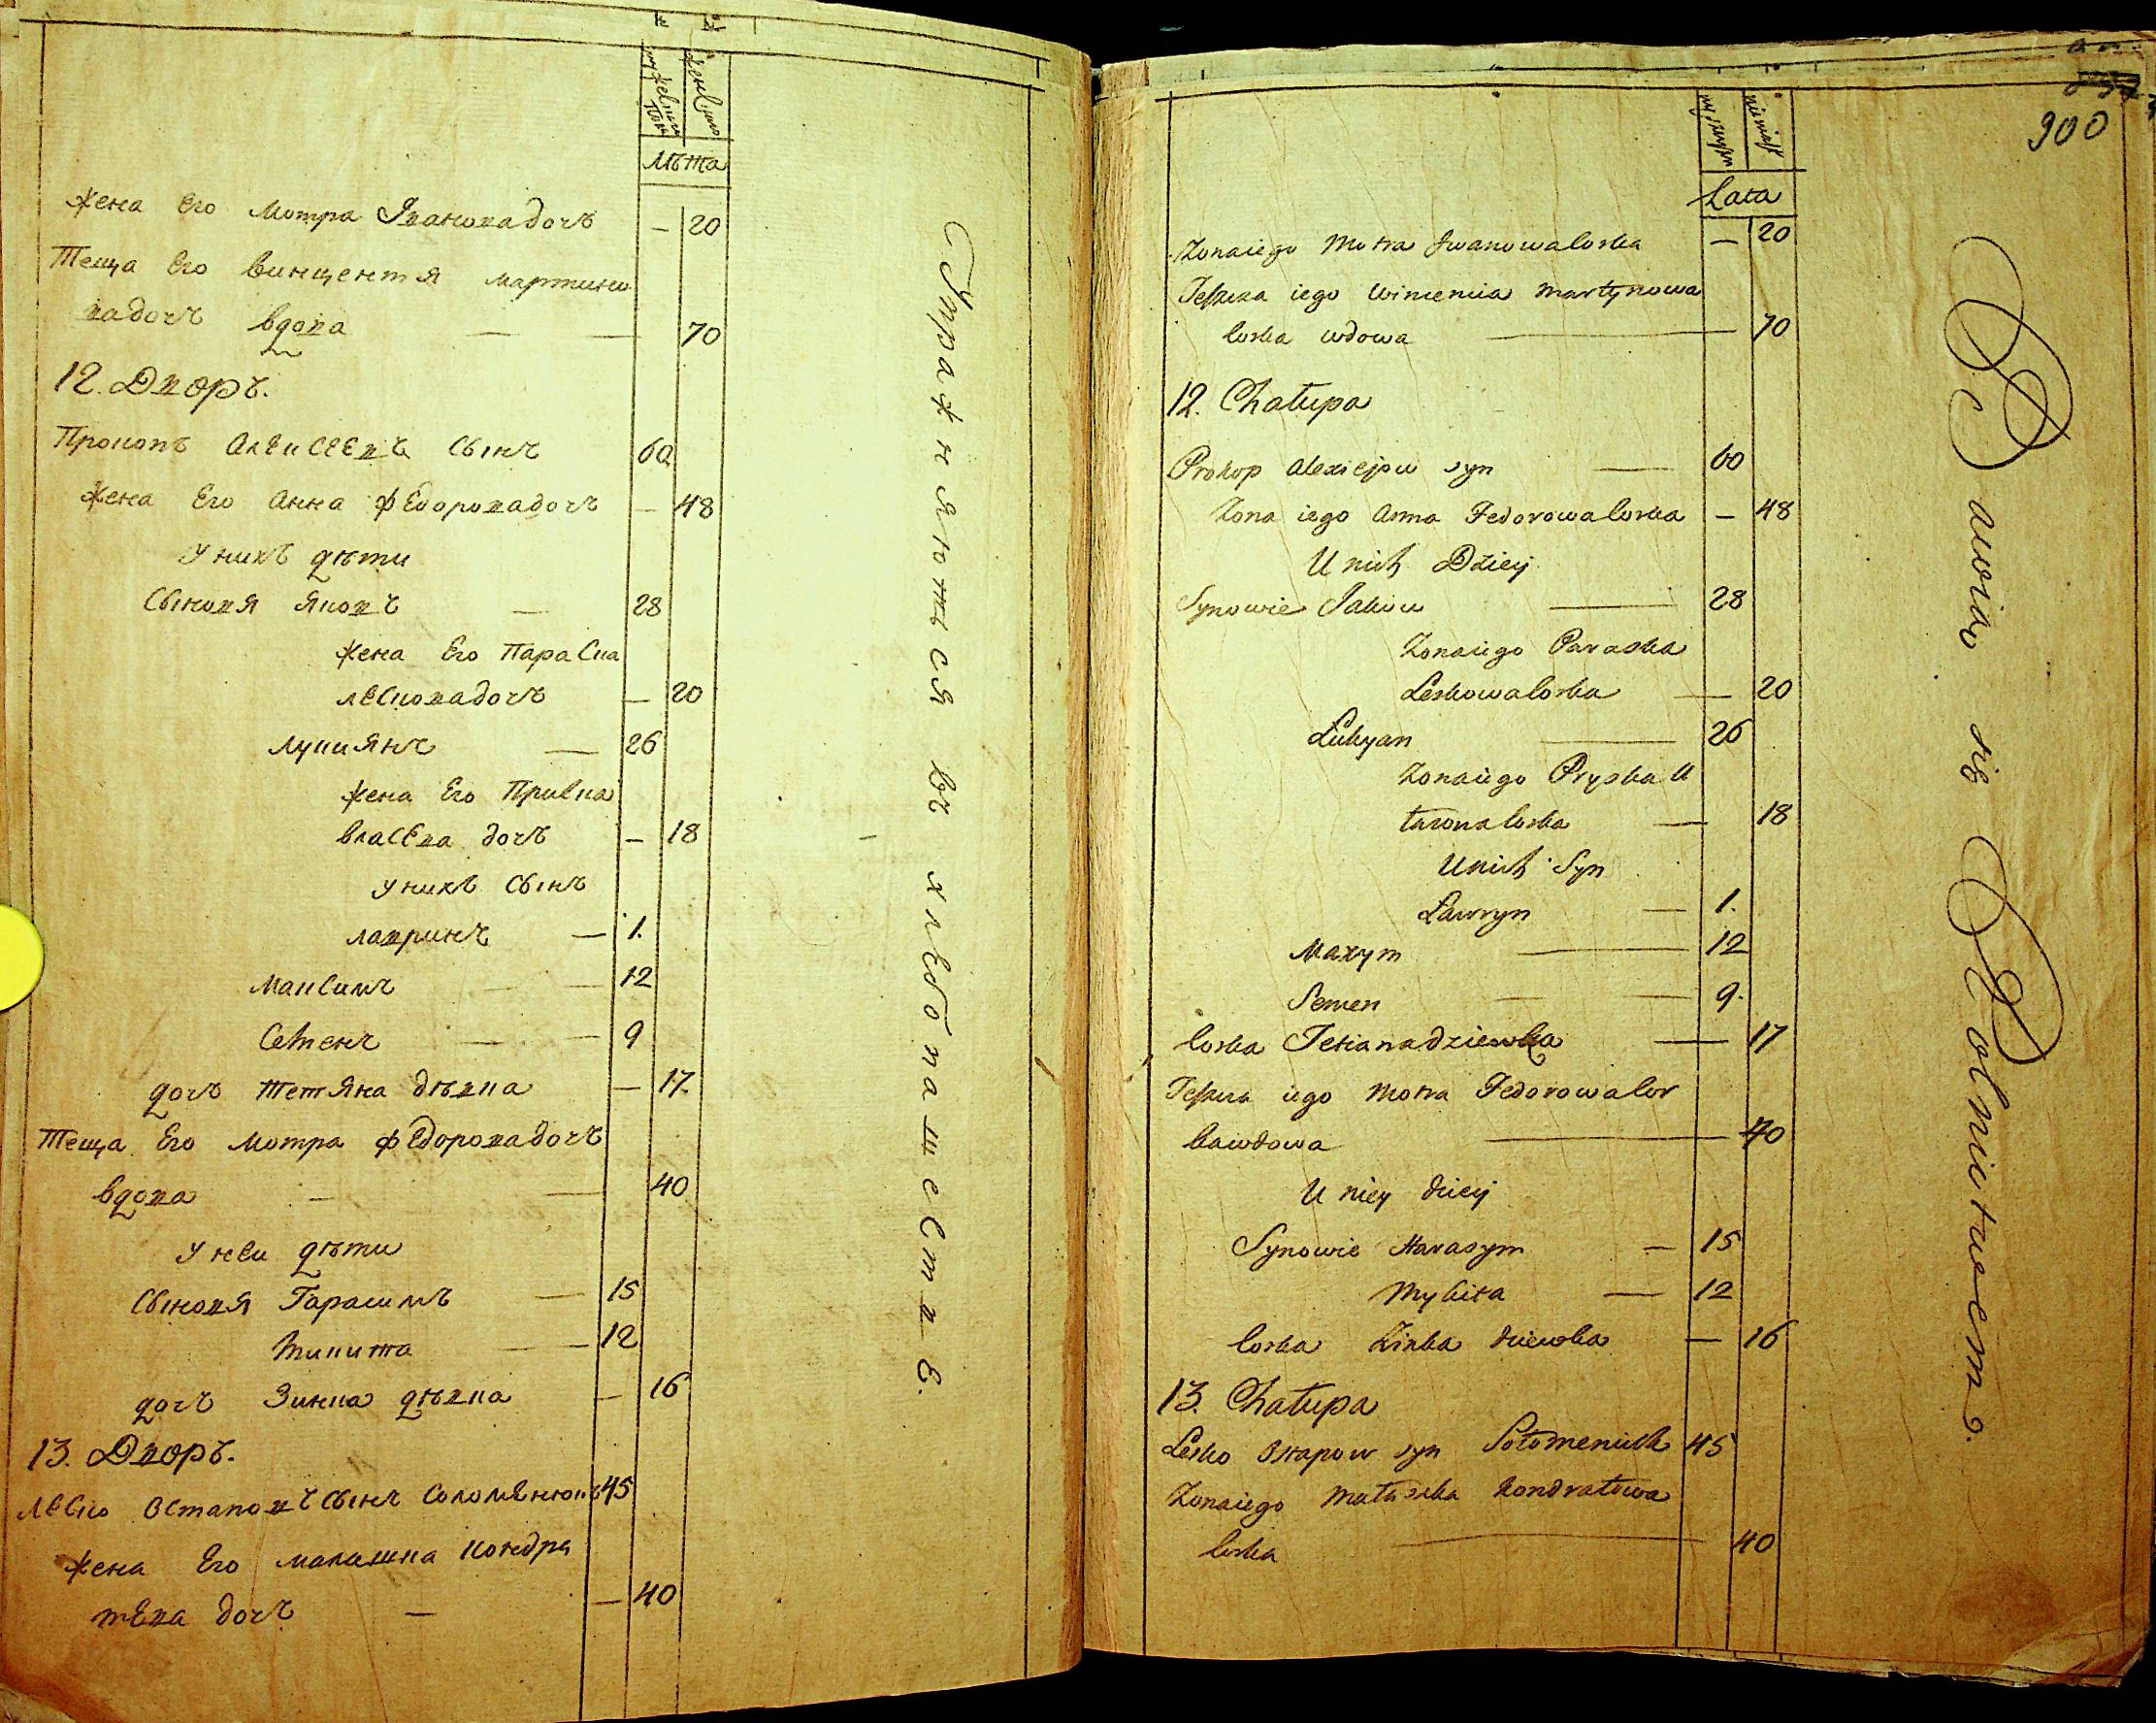 лѣта
жена Его Мотра Iвановадочъ — 20
Теща Его Винцентя мартини
вадочъ вдова — — 70
12. Дворъ.
Прокопъ Алексеевъ Сынъ 60
жена Его Анна Федоровадочъ — 48
Уникъ дѣти
Сыновя Яковъ — 28
жена Его Параска
лескowадочъ — 20
лукиянъ — 26
жена Его Приска
власева дочъ — 18
уникъ Сынъ
лавринъ — 1.
Максимъ — 12
Семенъ — 9
дочъ тетяна дѣвка — 17.
Теща Его Мотра Федоровадочъ
вдова — — 40
у неи дѣти
Сыновя Гарасимъ — 15
Микита — 12
дочъ Зинка дѣвка — 16
13. Дворъ.
леско Остаповъ Сынъ Соломенюкъ 45
жена Его малашка кондра
тева дочъ — — 40
Упражняются въ хлебопашестве.
900
Lata
Zonaiego Motra Iwanowalorka — 20
Teszcza iego Wincencia Martynowa
Corka wdowa — 70
12. Chałupa
Prokop Alexiejow syn — 60
Zona iego Anna Fedorowalorka — 48
U nich Dziey
Synowie Jakow — 28
Zonaiego Paraska
Leskowalorka — 20
Łukyan — 26
Zonaiego Pryska U
łasowalorka — 18
Unich Syn
Ławryn — 1.
Maxym — 12
Semen — 9.
Corka Tetianadziewka — 17
Teszcza iego Motra Fedorowalor
kawdowa — 40
U niey dziey
Synowie Harasym — 15
Mykita — 12
Corka Zinka dziewka — 16
13. Chałupa
Lesko Ostapow syn Sołomeniuk 45
Zonaiego Małaszka Kondratowa
Corka — 40
Bawią się Rolnictwem.